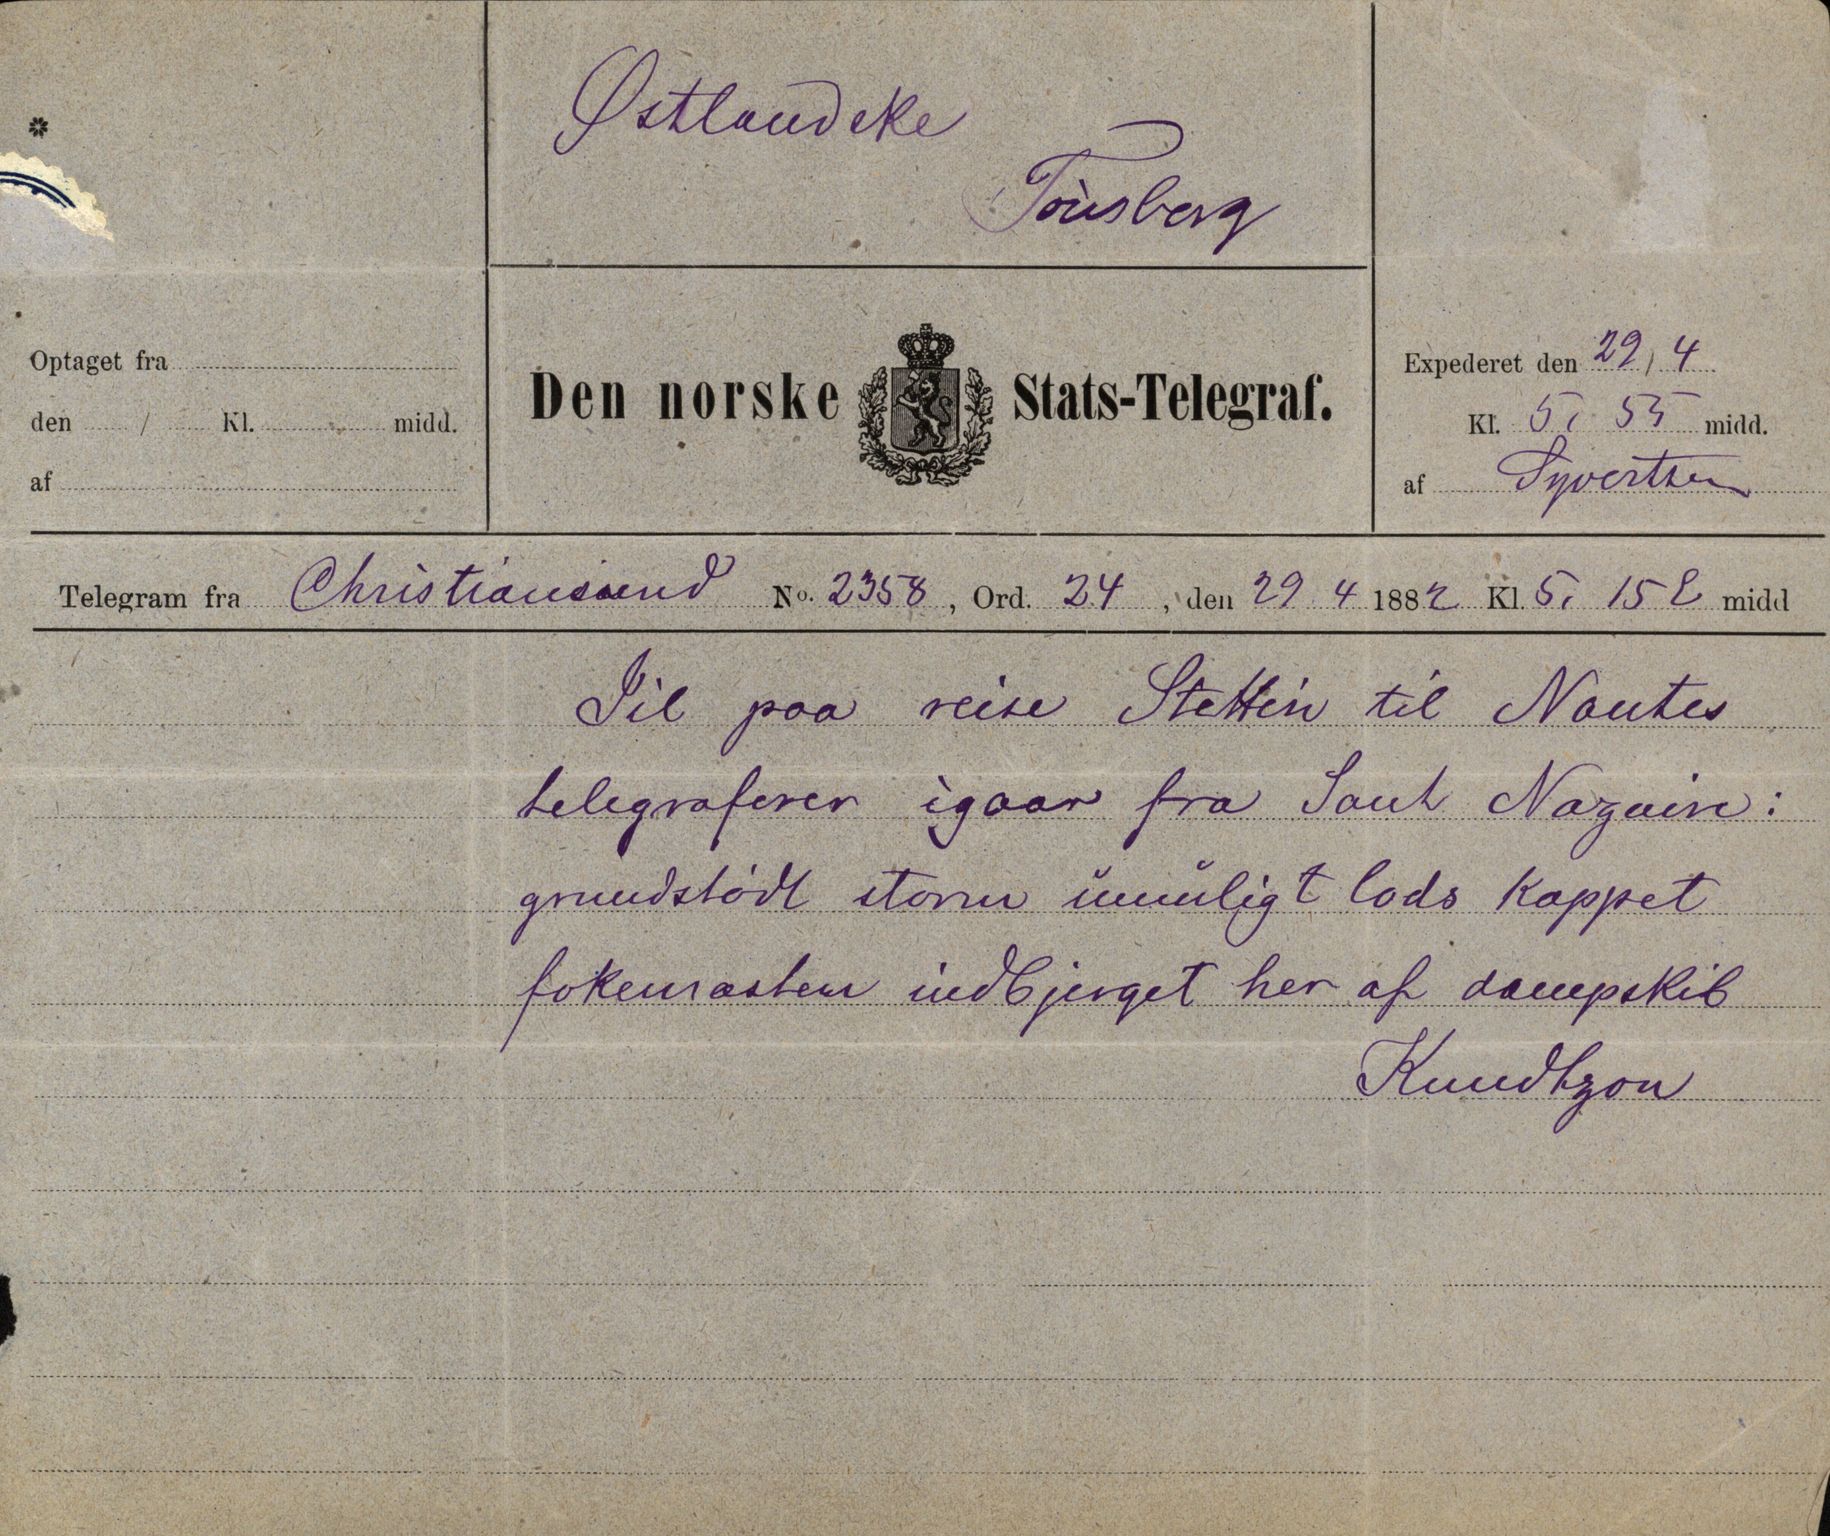 Østlandske
Tønsberg
Optaget fra
den / Kl. midd.
af
Den norske Stats-Telegraf.
Expederet den 29/4
Kl. 5,55 midd.
af Syvertsen
Telegram fra Christiansund No. 2358, Ord. 24, den 29 4 1882 Kl. 5,15 E midd
Iil paa reise Stettin til Nantes
telegraferer igaar fra Sant Nazaire:
grundstødt storm umuligt lods kappet
fokemasten indbjerget her af dampskib
Knudtzon